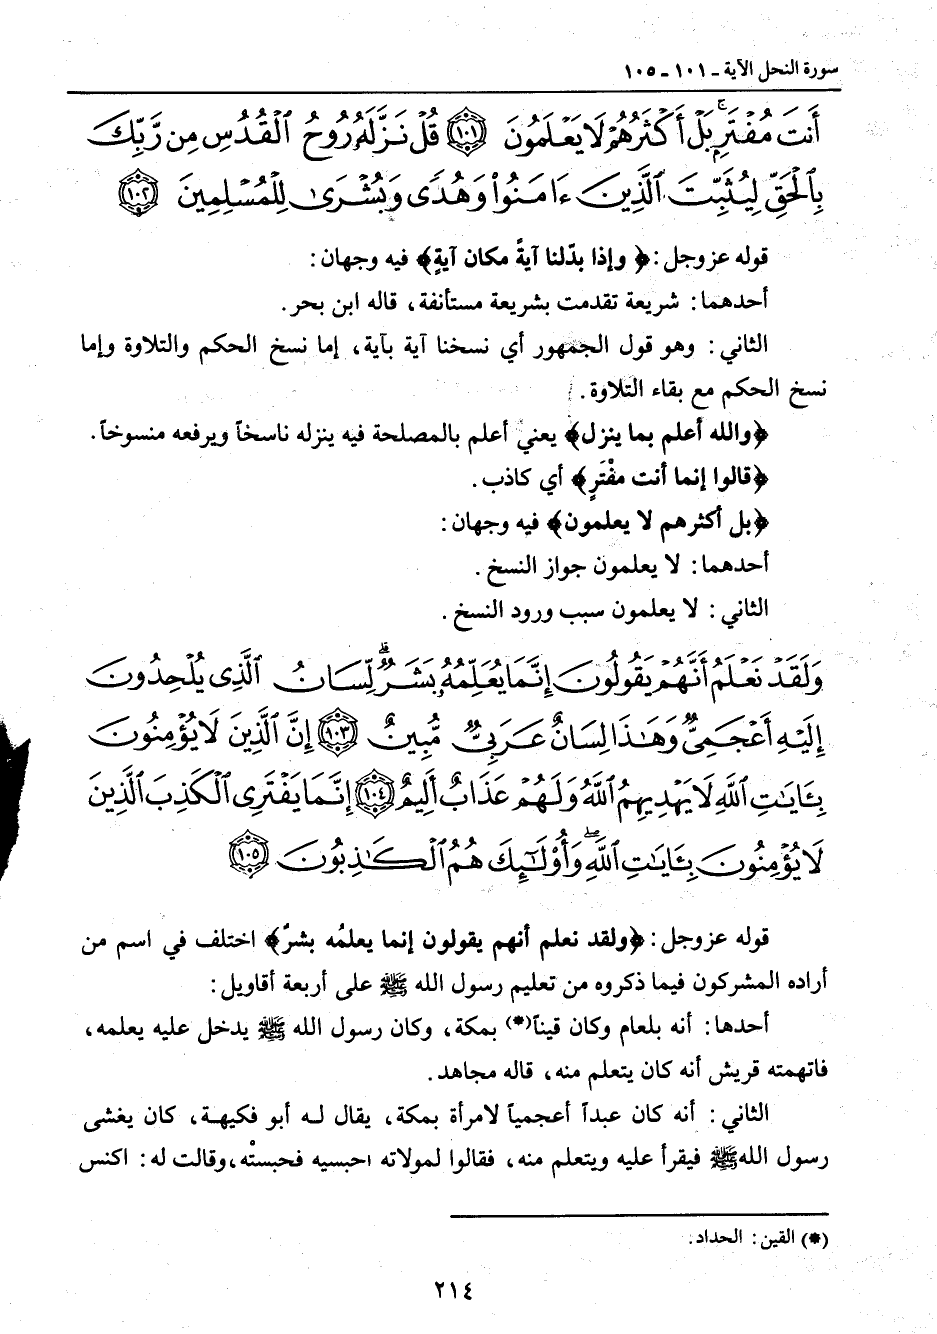 سورة النحل الآية ـ ١٠١ ـ ١٠٥
أَنتَ مُفْتَرٍۭ ۚ بَلْ أَكْثَرُهُمْ لَا يَعْلَمُونَ ١٠١ قُلْ نَزَّلَهُۥ رُوحُ ٱلْقُدُسِ مِن رَّبِّكَ
بِٱلْحَقِّ لِيُثَبِّتَ ٱلَّذِينَ ءَامَنُوا۟ وَهُدًى وَبُشْرَىٰ لِلْمُسْلِمِينَ ١٠٢
قوله عز وجل: ﴿وإذا بدّلنا آيةً مكان آيةٍ﴾ فيه وجهان:
أحدهما: شريعة تقدمت بشريعة مستأنفة، قاله ابن بحر.
الثاني: وهو قول الجمهور أي نسخنا آية بآية، إما نسخ الحكم والتلاوة وإما
نسخ الحكم مع بقاء التلاوة.
﴿والله أعلم بما ينزل﴾ يعني أعلم بالمصلحة فيه ينزله ناسخاً ويرفعه منسوخاً.
﴿قالوا إنما أنت مفْتَرٍ﴾ أي كاذب.
﴿بل أكثرهم لا يعلمون﴾ فيه وجهان:
أحدهما: لا يعلمون جواز النسخ.
الثاني: لا يعلمون سبب ورود النسخ.
وَلَقَدْ نَعْلَمُ أَنَّهُمْ يَقُولُونَ إِنَّمَا يُعَلِّمُهُۥ بَشَرٌ ۗ لِّسَانُ ٱلَّذِى يُلْحِدُونَ
إِلَيْهِ أَعْجَمِىٌّ وَهَٰذَا لِسَانٌ عَرَبِىٌّ مُّبِينٌ ١٠٣ إِنَّ ٱلَّذِينَ لَا يُؤْمِنُونَ
بِـَٔايَٰتِ ٱللَّهِ لَا يَهْدِيهِمُ ٱللَّهُ وَلَهُمْ عَذَابٌ أَلِيمٌ ١٠٤ إِنَّمَا يَفْتَرِى ٱلْكَذِبَ ٱلَّذِينَ
لَا يُؤْمِنُونَ بِـَٔايَٰتِ ٱللَّهِ ۖ وَأُو۟لَٰٓئِكَ هُمُ ٱلْكَٰذِبُونَ ١٠٥
قوله عز وجل: ﴿ولقد نعلم أنهم يقولون إنما يعلمُه بشرٌ﴾ اختلف في اسم من
أراده المشركون فيما ذكروه من تعليم رسول الله ﷺ على أربعة أقاويل:
أحدها: أنه بلعام وكان قيناً(*) بمكة، وكان رسول الله ﷺ يدخل عليه يعلمه،
فاتهمته قريش أنه كان يتعلم منه، قاله مجاهد.
الثاني: أنه كان عبداً أعجمياً لامرأة بمكة، يقال له أبو فكيهة، كان يغشى
رسول الله ﷺ فيقرأ عليه ويتعلم منه، فقالوا لمولاته احبسيه فحبستْه، وقالت له: اكنس
(*) القين: الحداد.
٢١٤